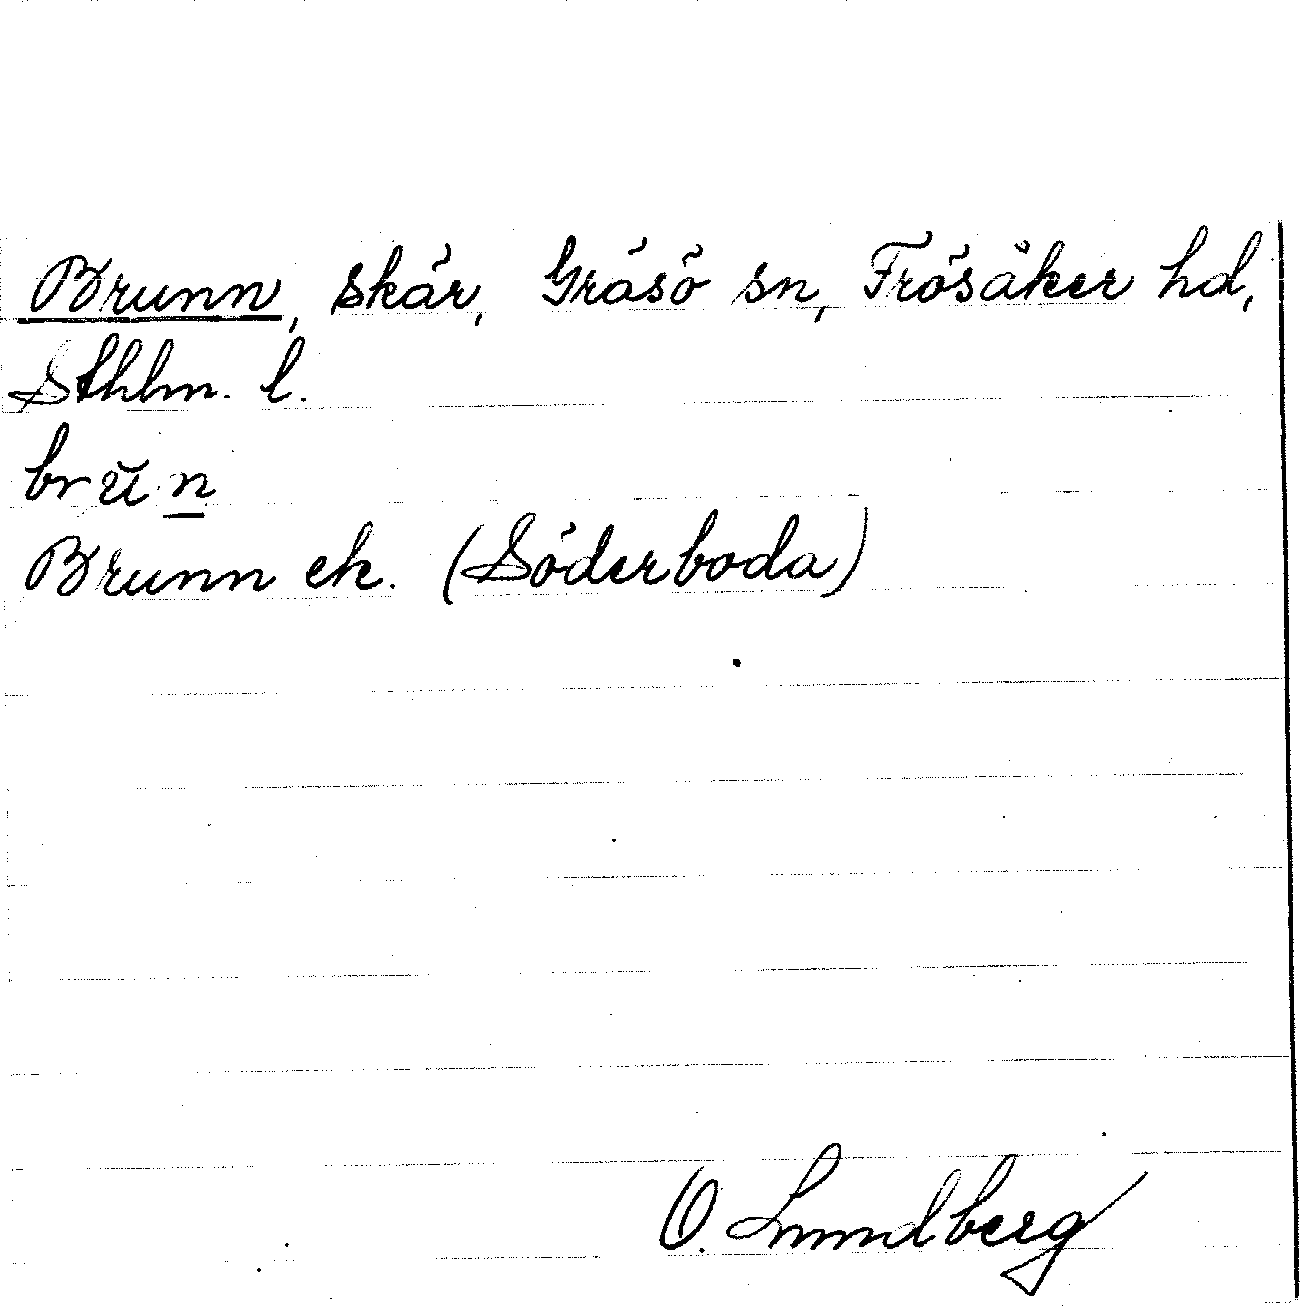 Brunn, skär, Gräsö sn, Frösåker hd,
Sthlm. l.
brŭn
Brunn ek. (Söderboda)
O. Lundberg